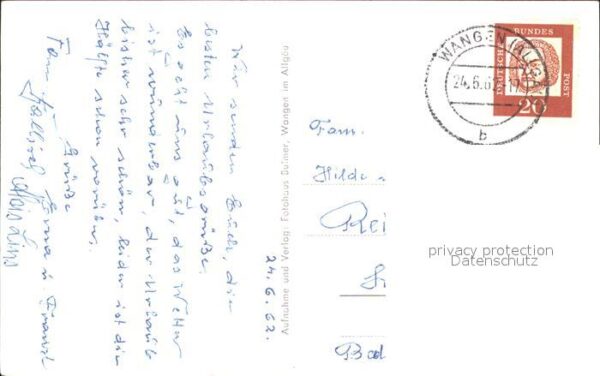 24.6.62.
Wir senden Euch, die
besten Urlaubsgrüße.
Es geht uns gut, das Wetter
ist wunderbar, der Urlaub
bisher sehr schön, leider ist die
Hälfte schon vorüber.
Grüße
Fam.
Erna u. Franzl
Aufnahme und Verlag: Fotohaus Bulmer, Wangen im Allgäu
WANGEN (ALLGÄU)
24.6.62
b
DEUTSCHE BUNDESPOST
20
Fam.
Hilde
Rei
Bad
privacy protection
Datenschutz